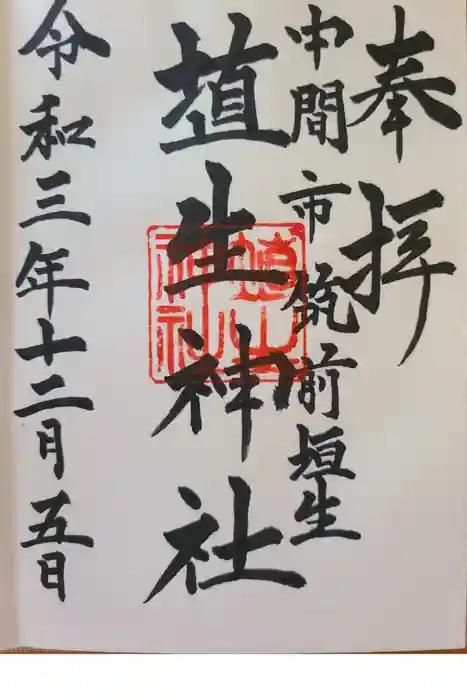 奉拝
中間市筑前垣生
埴生神社
埴生神社
令和三年十二月五日